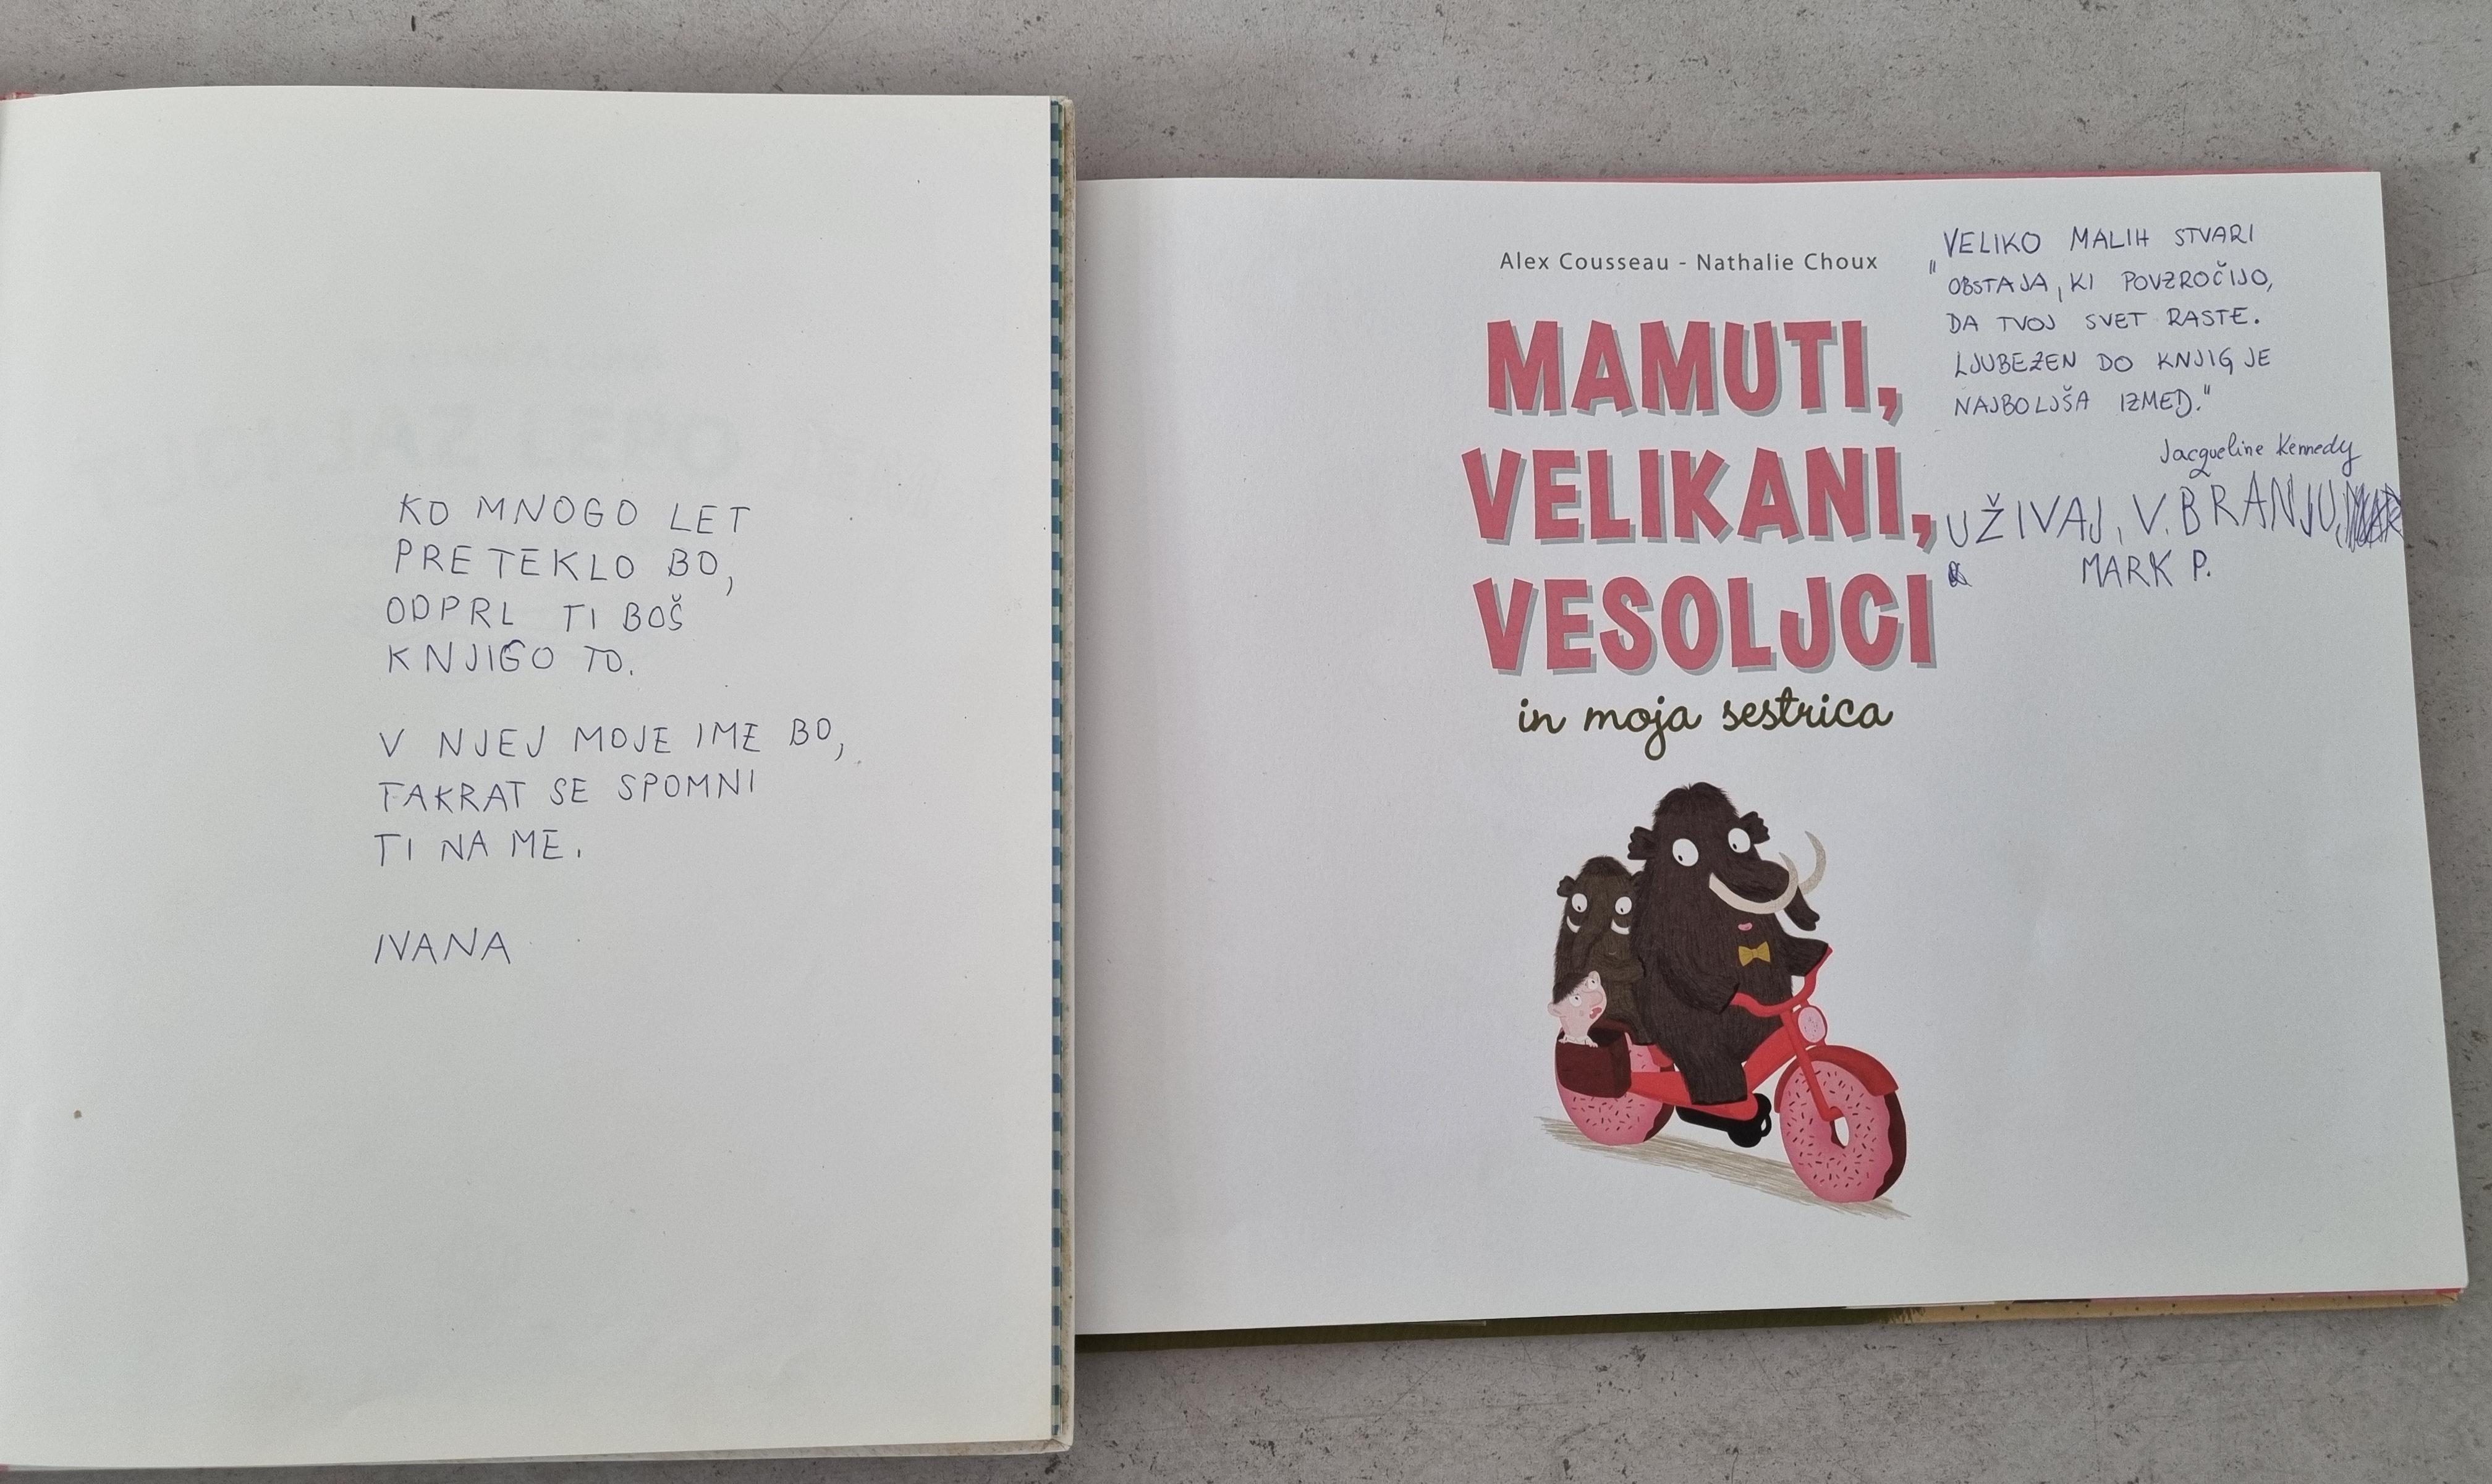 KO MNOGO LET
PRETEKLO BO,
ODPRL TI BOŠ
KNJIGO TO.
V NJEJ MOJE IME BO,
TAKRAT SE SPOMNI
TI NA ME.
IVANA
Alex Cousseau - Nathalie Choux
MAMUTI,
VELIKANI,
VESOLJCI
in moja sestrica
"VELIKO MALIH STVARI
OBSTAJA, KI POVZROČIJO,
DA TVOJ SVET RASTE.
LJUBEZEN DO KNJIG JE
NAJBOLJŠA IZMED."
Jacqueline Kennedy
UŽIVAJ, V. BRANJU,
MARK P.